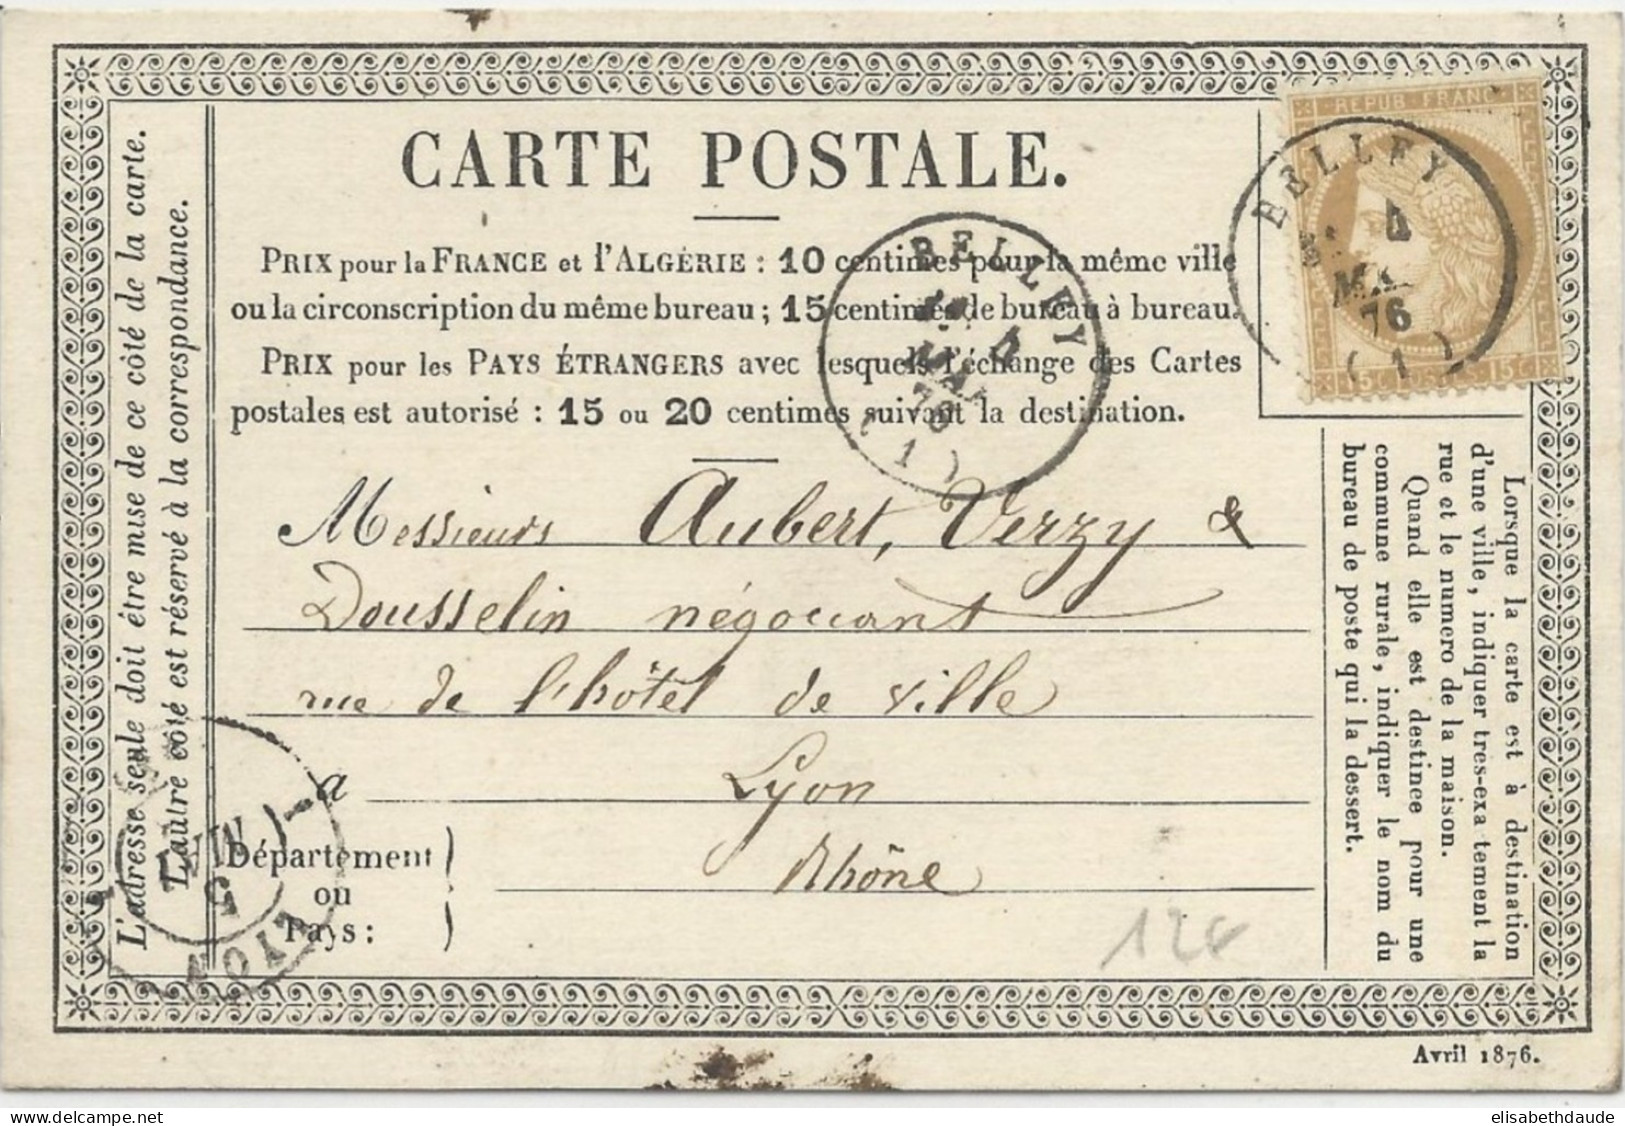 CARTE POSTALE.
PRIX pour la FRANCE et l'ALGÉRIE : 10 centimes pour la même ville
ou la circonscription du même bureau ; 15 centimes de bureau à bureau.
PRIX pour les PAYS ÉTRANGERS avec lesquels l'échange des Cartes
postales est autorisé : 15 ou 20 centimes suivant la destination.
Messieurs Aubert, Verzy &
Dousselin négociant
rue de l'hôtel de ville
a Lyon
Département
ou
Pays :
Rhône
L'adresse seule doit être mise de ce côté de la carte.
L'autre côté est réservé à la correspondance.
Lorsque la carte est à destination
d'une ville, indiquer tres-exa tement la
rue et le numero de la maison.
Quand elle est destinee pour une
commune rurale, indiquer le nom du
bureau de poste qui la dessert.
REPUB FRANC
15C
BELLEY
4
MAI
76
(1)
BELLEY
4
MAI
76
(1)
LYON
5
MAI
Avril 1876.
www.delcampe.net
elisabethdaude